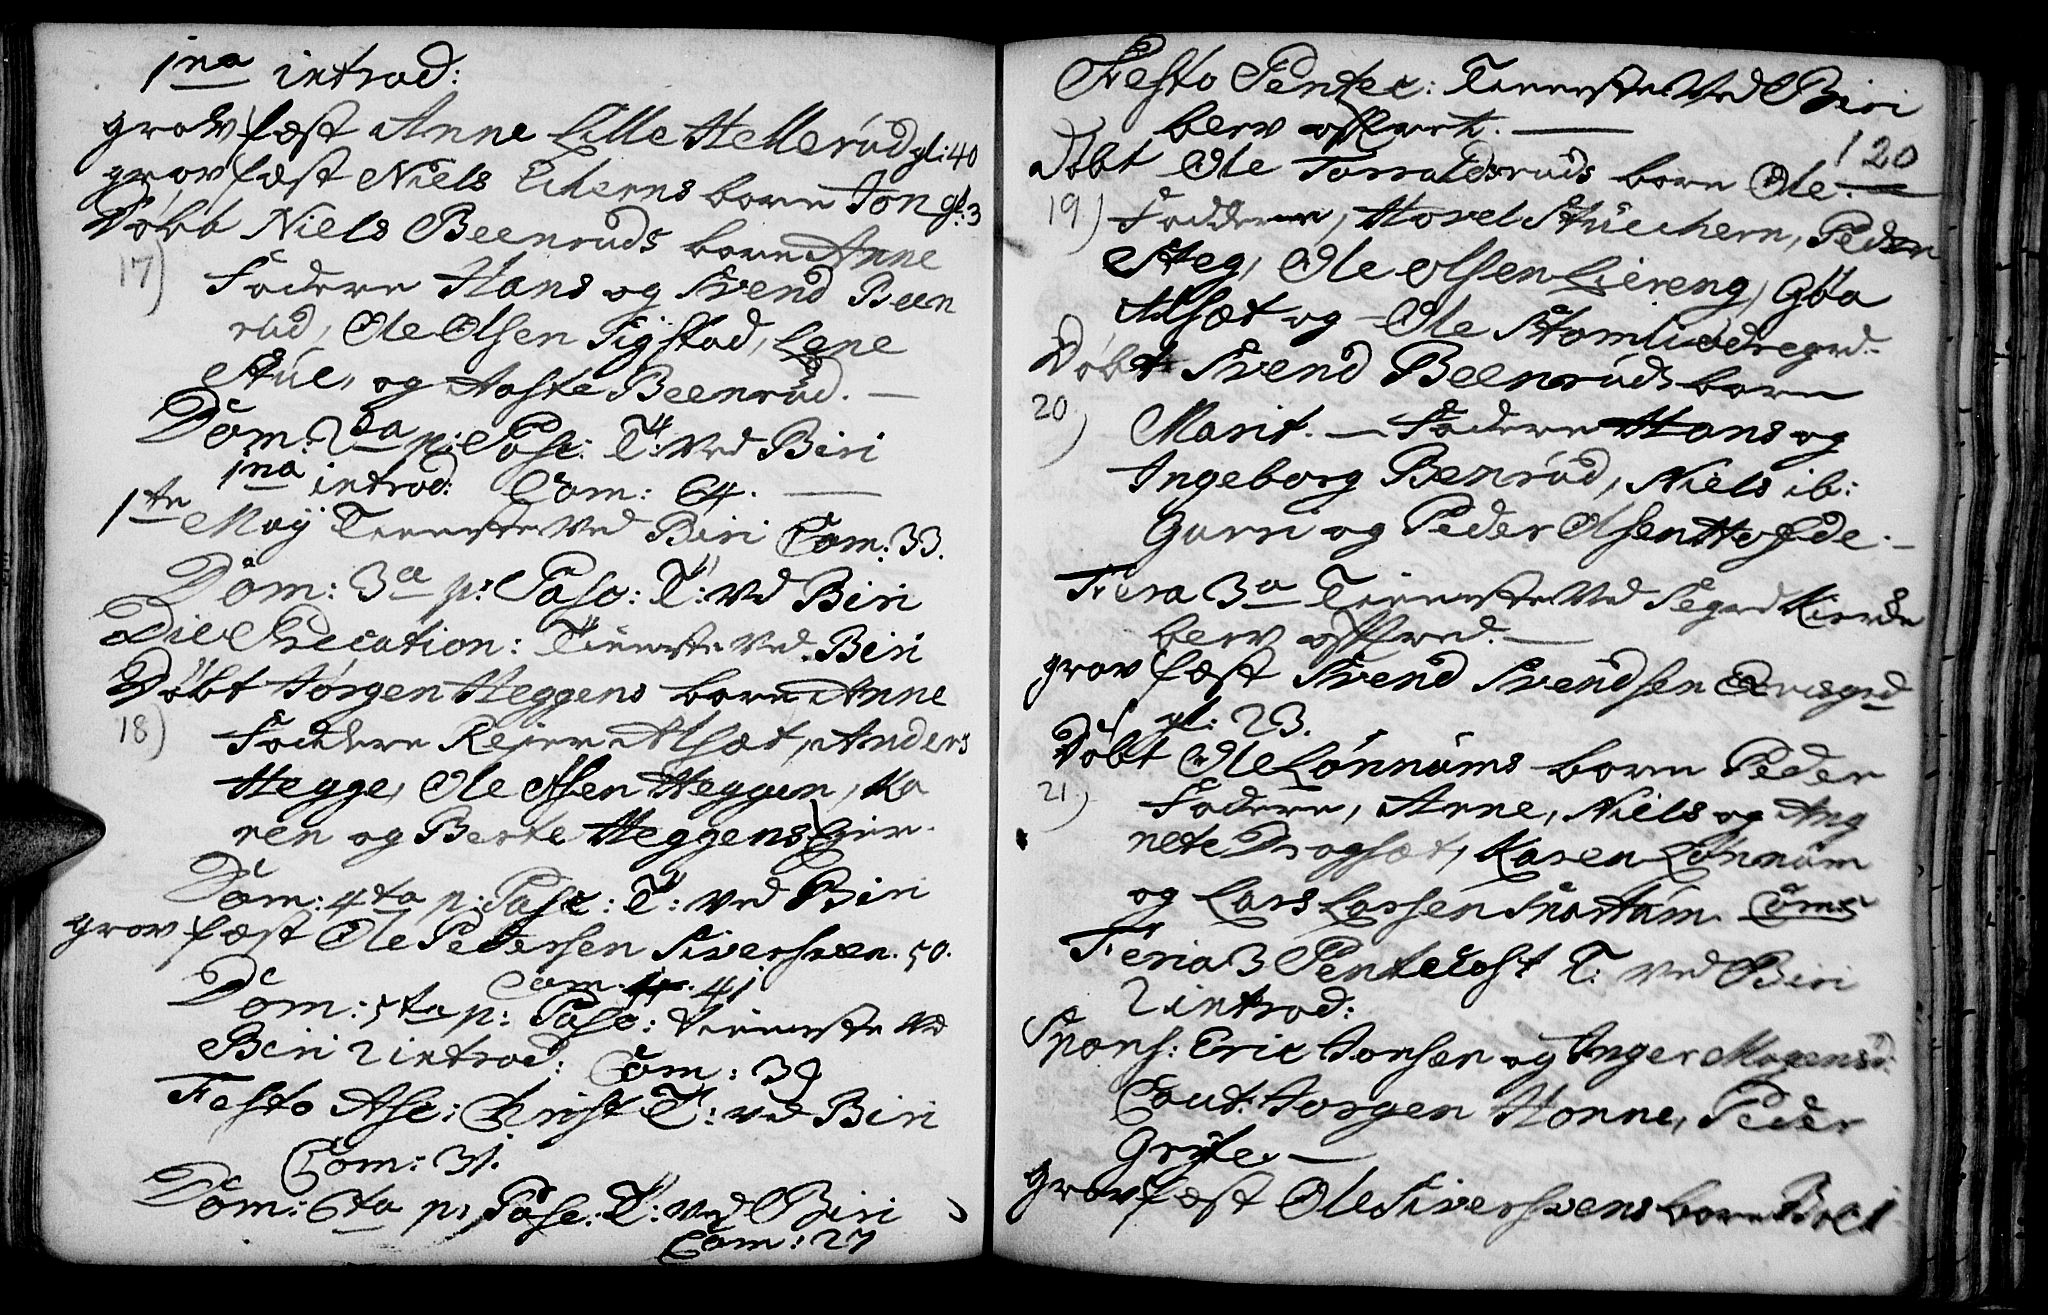 1na introd:
grov fæst Anne Lille Hellerud gl: 40
grov fæst Niels Ekerns born Jon gl: 3
Døbt Niels Beenruds born Anne
17) Fadere Hans og Svend Been
rud, Ole Olsen Sigstad, Lene
Stúe, og Aaste Beenrud. —
Dom: 2da p: Pasc: T: ved Biri
1na introd: Com: 64. —
1te Maÿ Tieneste ved Biri Com: 33.
Dom: 3a p: Pasc: T: ved Biri
Die Precation: Tieneste ved Biri
Døbt Jørgen Heggens born Anne
18) Faddere Rejer Alsæt, Anders
Hegge, Ole Olsen Heggen, Ka
ren og Berte Heggens Eier.
Dom: 4ta p: Pasc: T: ved Biri
grov fæst Ole Pedersen Siversveen. 50.
Com. 41
Dom: 5ta p: Pasc: Tieneste ved
Biri 2 introd: Com: 39
Festo Asc: Christ T: ved Biri
Com: 31.
Dom: 6ta p: Pasc: T: ved Biri
Com: 27
Festo Pentec: Tieneste ved Biri
berv
120
Døbt Ole Torraldsruds born Ole. —
19) Faddere, Hovel Stuechern, Peder
Steg, Ole Olsen Liereng, Gøa
Alsæt og Ole Stomliødegrd.
Døbt Svend Beenruds born
20) Marit. — Fadere Hans og
Ingeborg Benrud, Niels ib:
Guri og Peder Olsen Hofde. —
Feria 3a Tieneste ved Segrd Kierde
berv
grov fæst Svend Svendsen
gl: 23.
Døbt Ole Lønnums born Peder
21) Fadere, Anne, Niels og Ang
nete Dragsæt, Karen Lønnum
og Lars Larsen Snartum. Com 5
Feria 3 Pentecost T: ved Biri
2 introd:
Spons: Eric Jonsen og Inger Mogensd.
Caut. Jorgen Honne, Peder
Gryte. —
grov fæst Ole Siversveens born